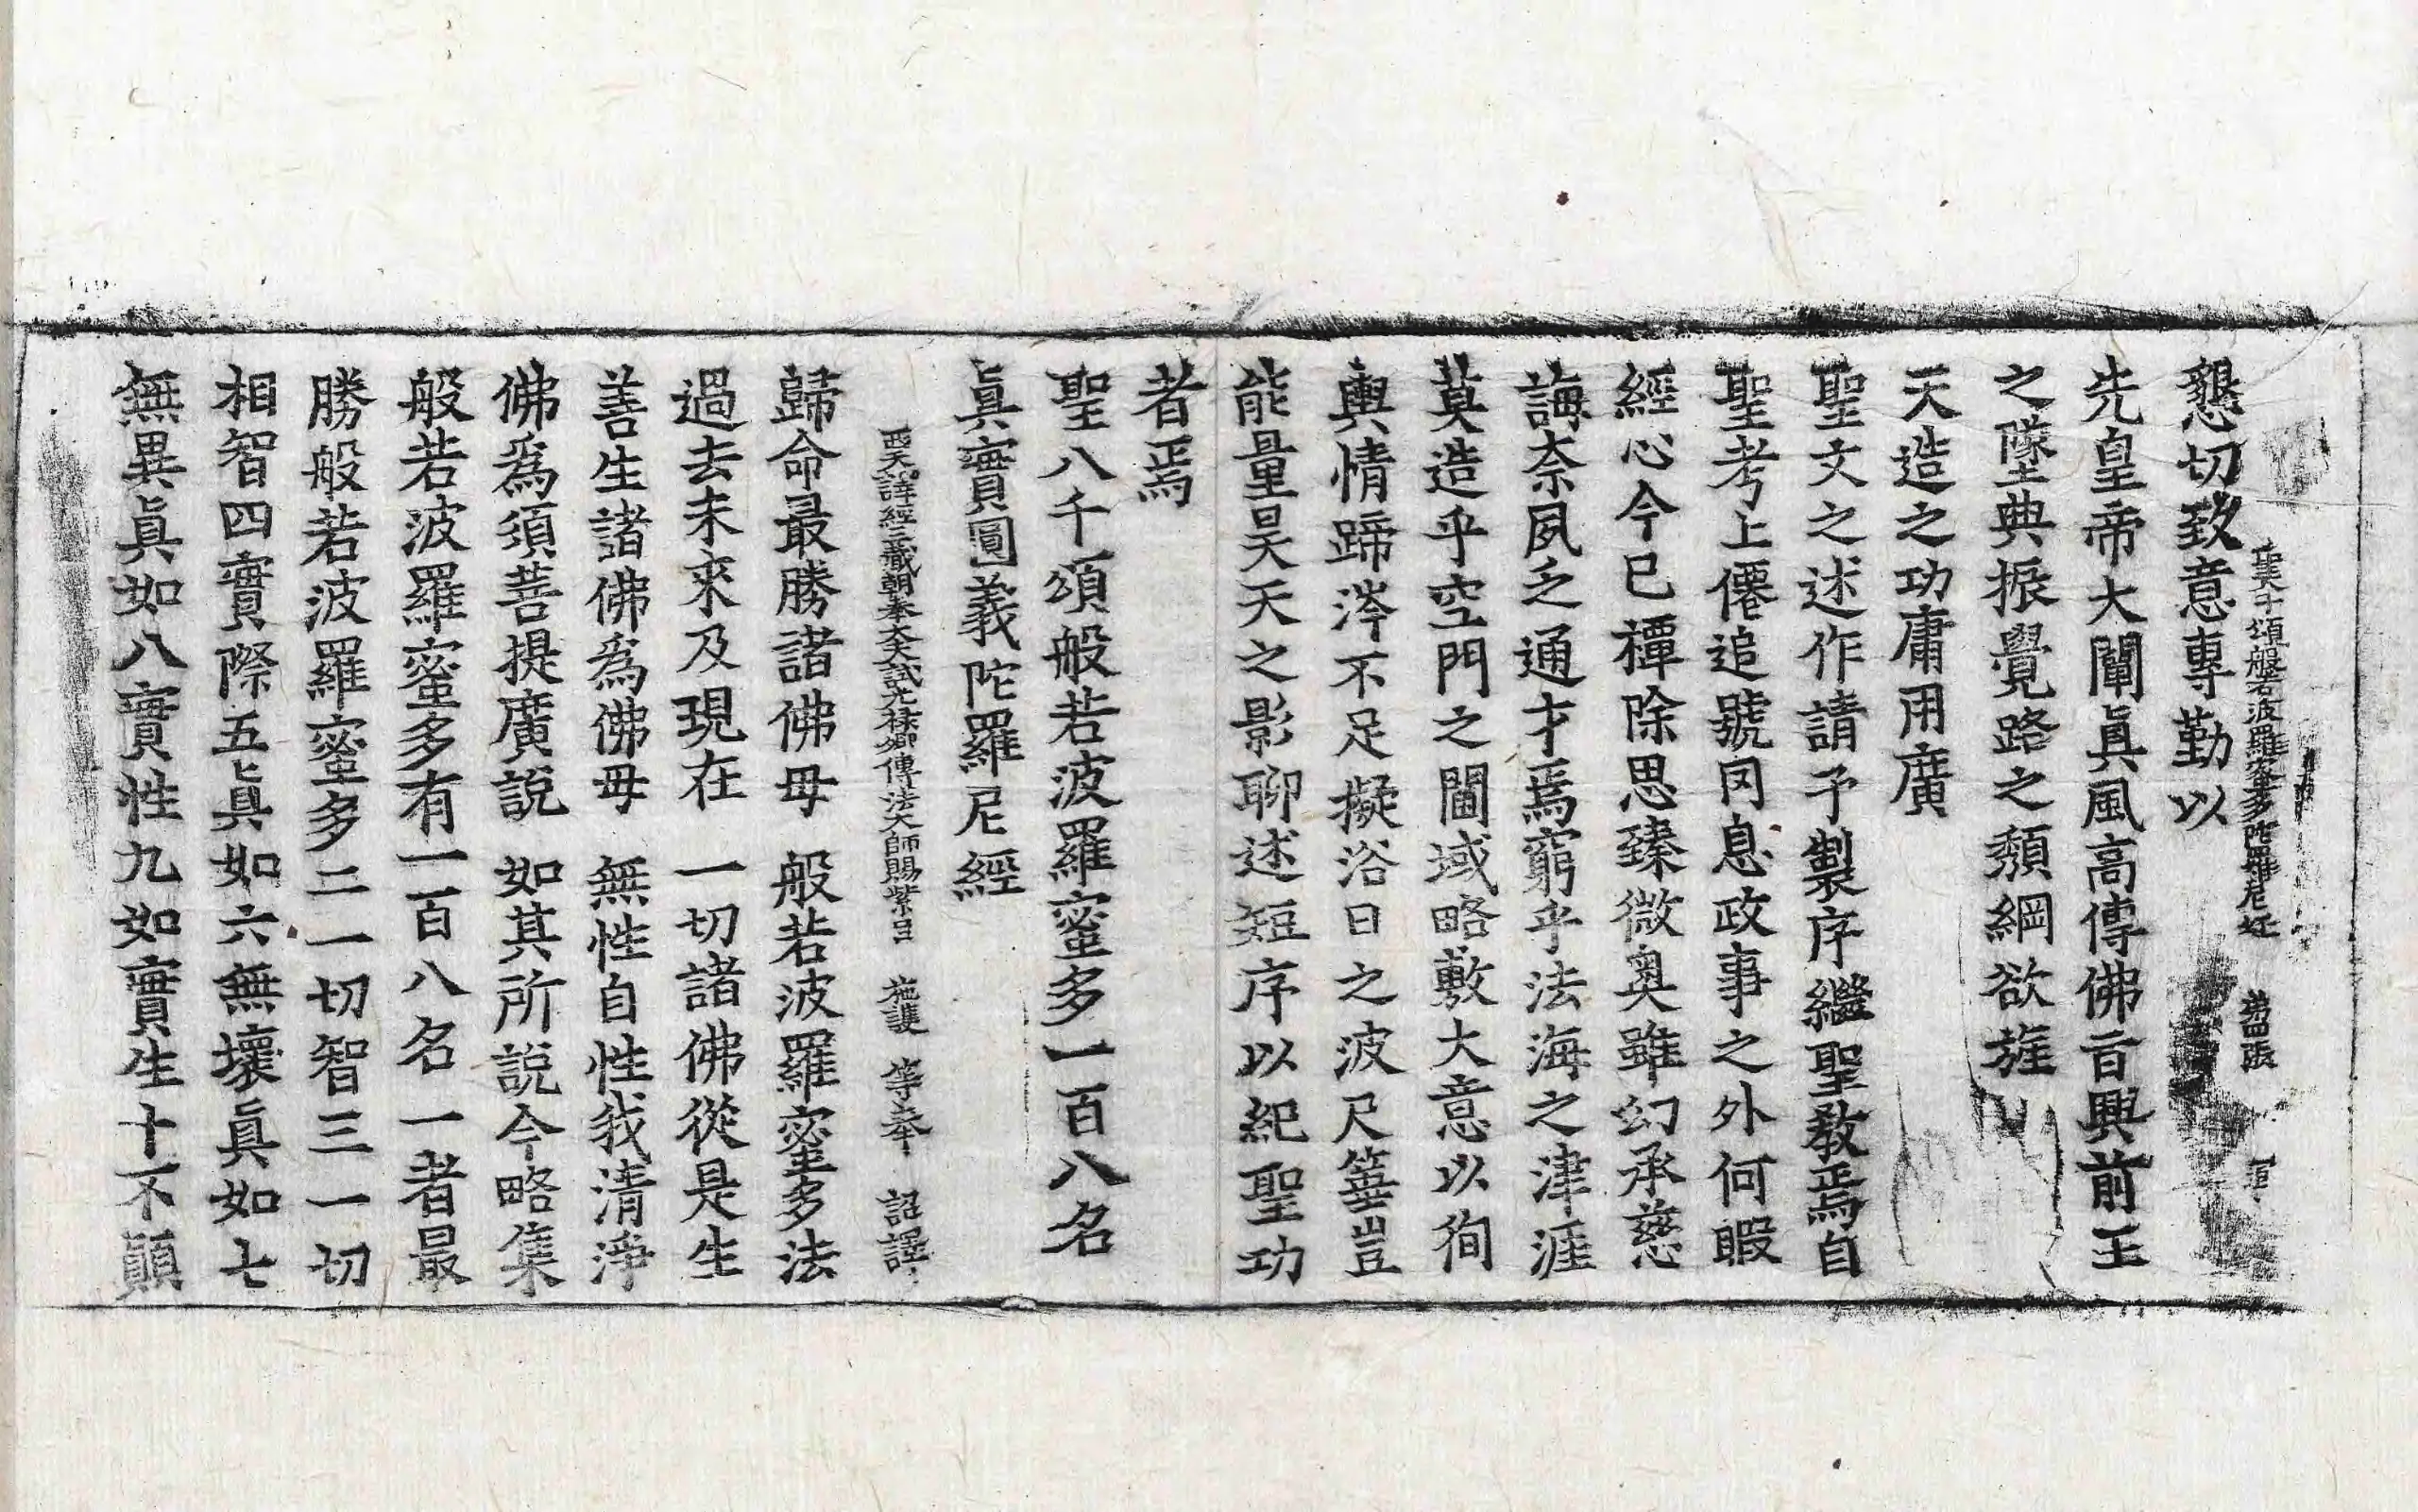 聖八千頌般若波羅蜜多陀羅尼經 第四張
懇切致意專勤以
先皇帝大闡眞風高傳佛旨興前王
之墜典振覺路之頹綱欲旌
天造之功庸用廣
聖文之述作請予製序繼聖教焉自
聖考上僊追號罔息政事之外何暇
經心今已禫除思臻微奧雖幻承慈
誨奈夙乏通才焉窮乎法海之津涯
莫造乎空門之閫域略敷大意以徇
輿情蹄涔不足擬浴日之波尺箠豈
能量昊天之影聊述短序以紀聖功
者焉
聖八千頌般若波羅蜜多一百八名
眞實圓義陀羅尼經
西天譯經三藏朝奉大夫試光祿卿傳法大師賜紫臣 施護 等奉 詔譯
歸命最勝諸佛母 般若波羅蜜多法
過去未來及現在 一切諸佛從是生
善生諸佛爲佛母 無性自性我清淨
佛爲須菩提廣說 如其所說今略集
般若波羅蜜多有一百八名一者最
勝般若波羅蜜多二一切智三一切
相智四實際五眞如六無壞眞如七
無異眞如八實性九如實生十不顚